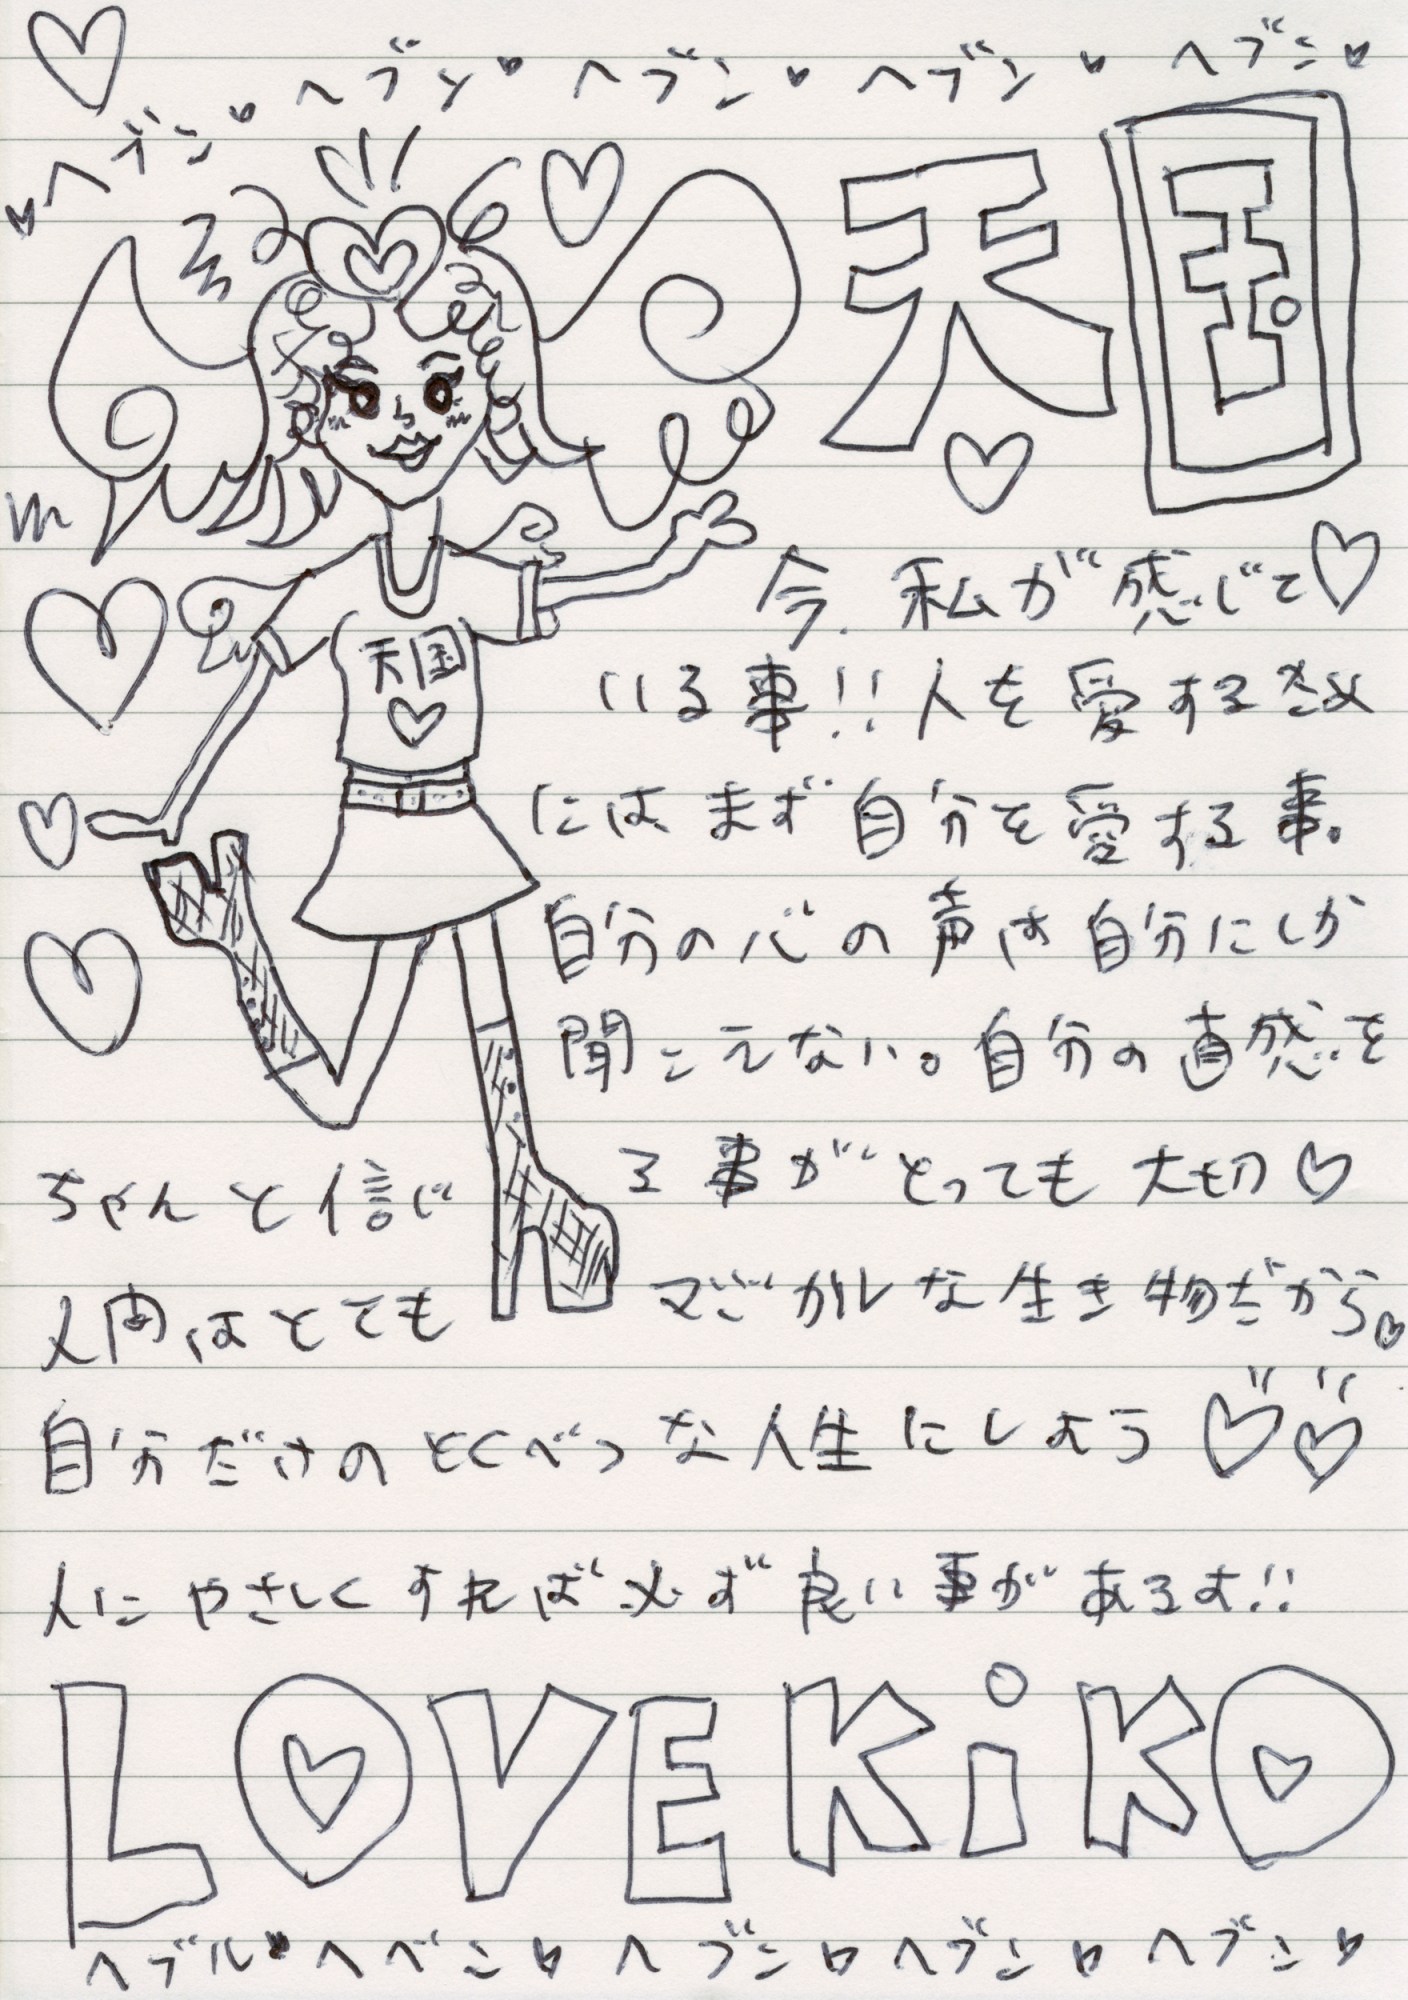 ♥ヘブン♥ヘブン♥ヘブン♥ヘブン♥ヘブン♥
天国
天国♡
今、私が感じて♡
いる事!!人を愛するため
には、まず自分を愛する事。
自分の心の声は自分にしか
聞こえない。自分の直感を
ちゃんと信じる事がとっても大切♡
人間はとてもマジカルな生き物だから♡
自分だけのとくべつな人生にしよう♡♡
人にやさしくすれば必ず良い事があるす!!
LOVE KiKO
ヘブル♥ヘベン♥ヘブン♥ヘブン♥ヘブン♥